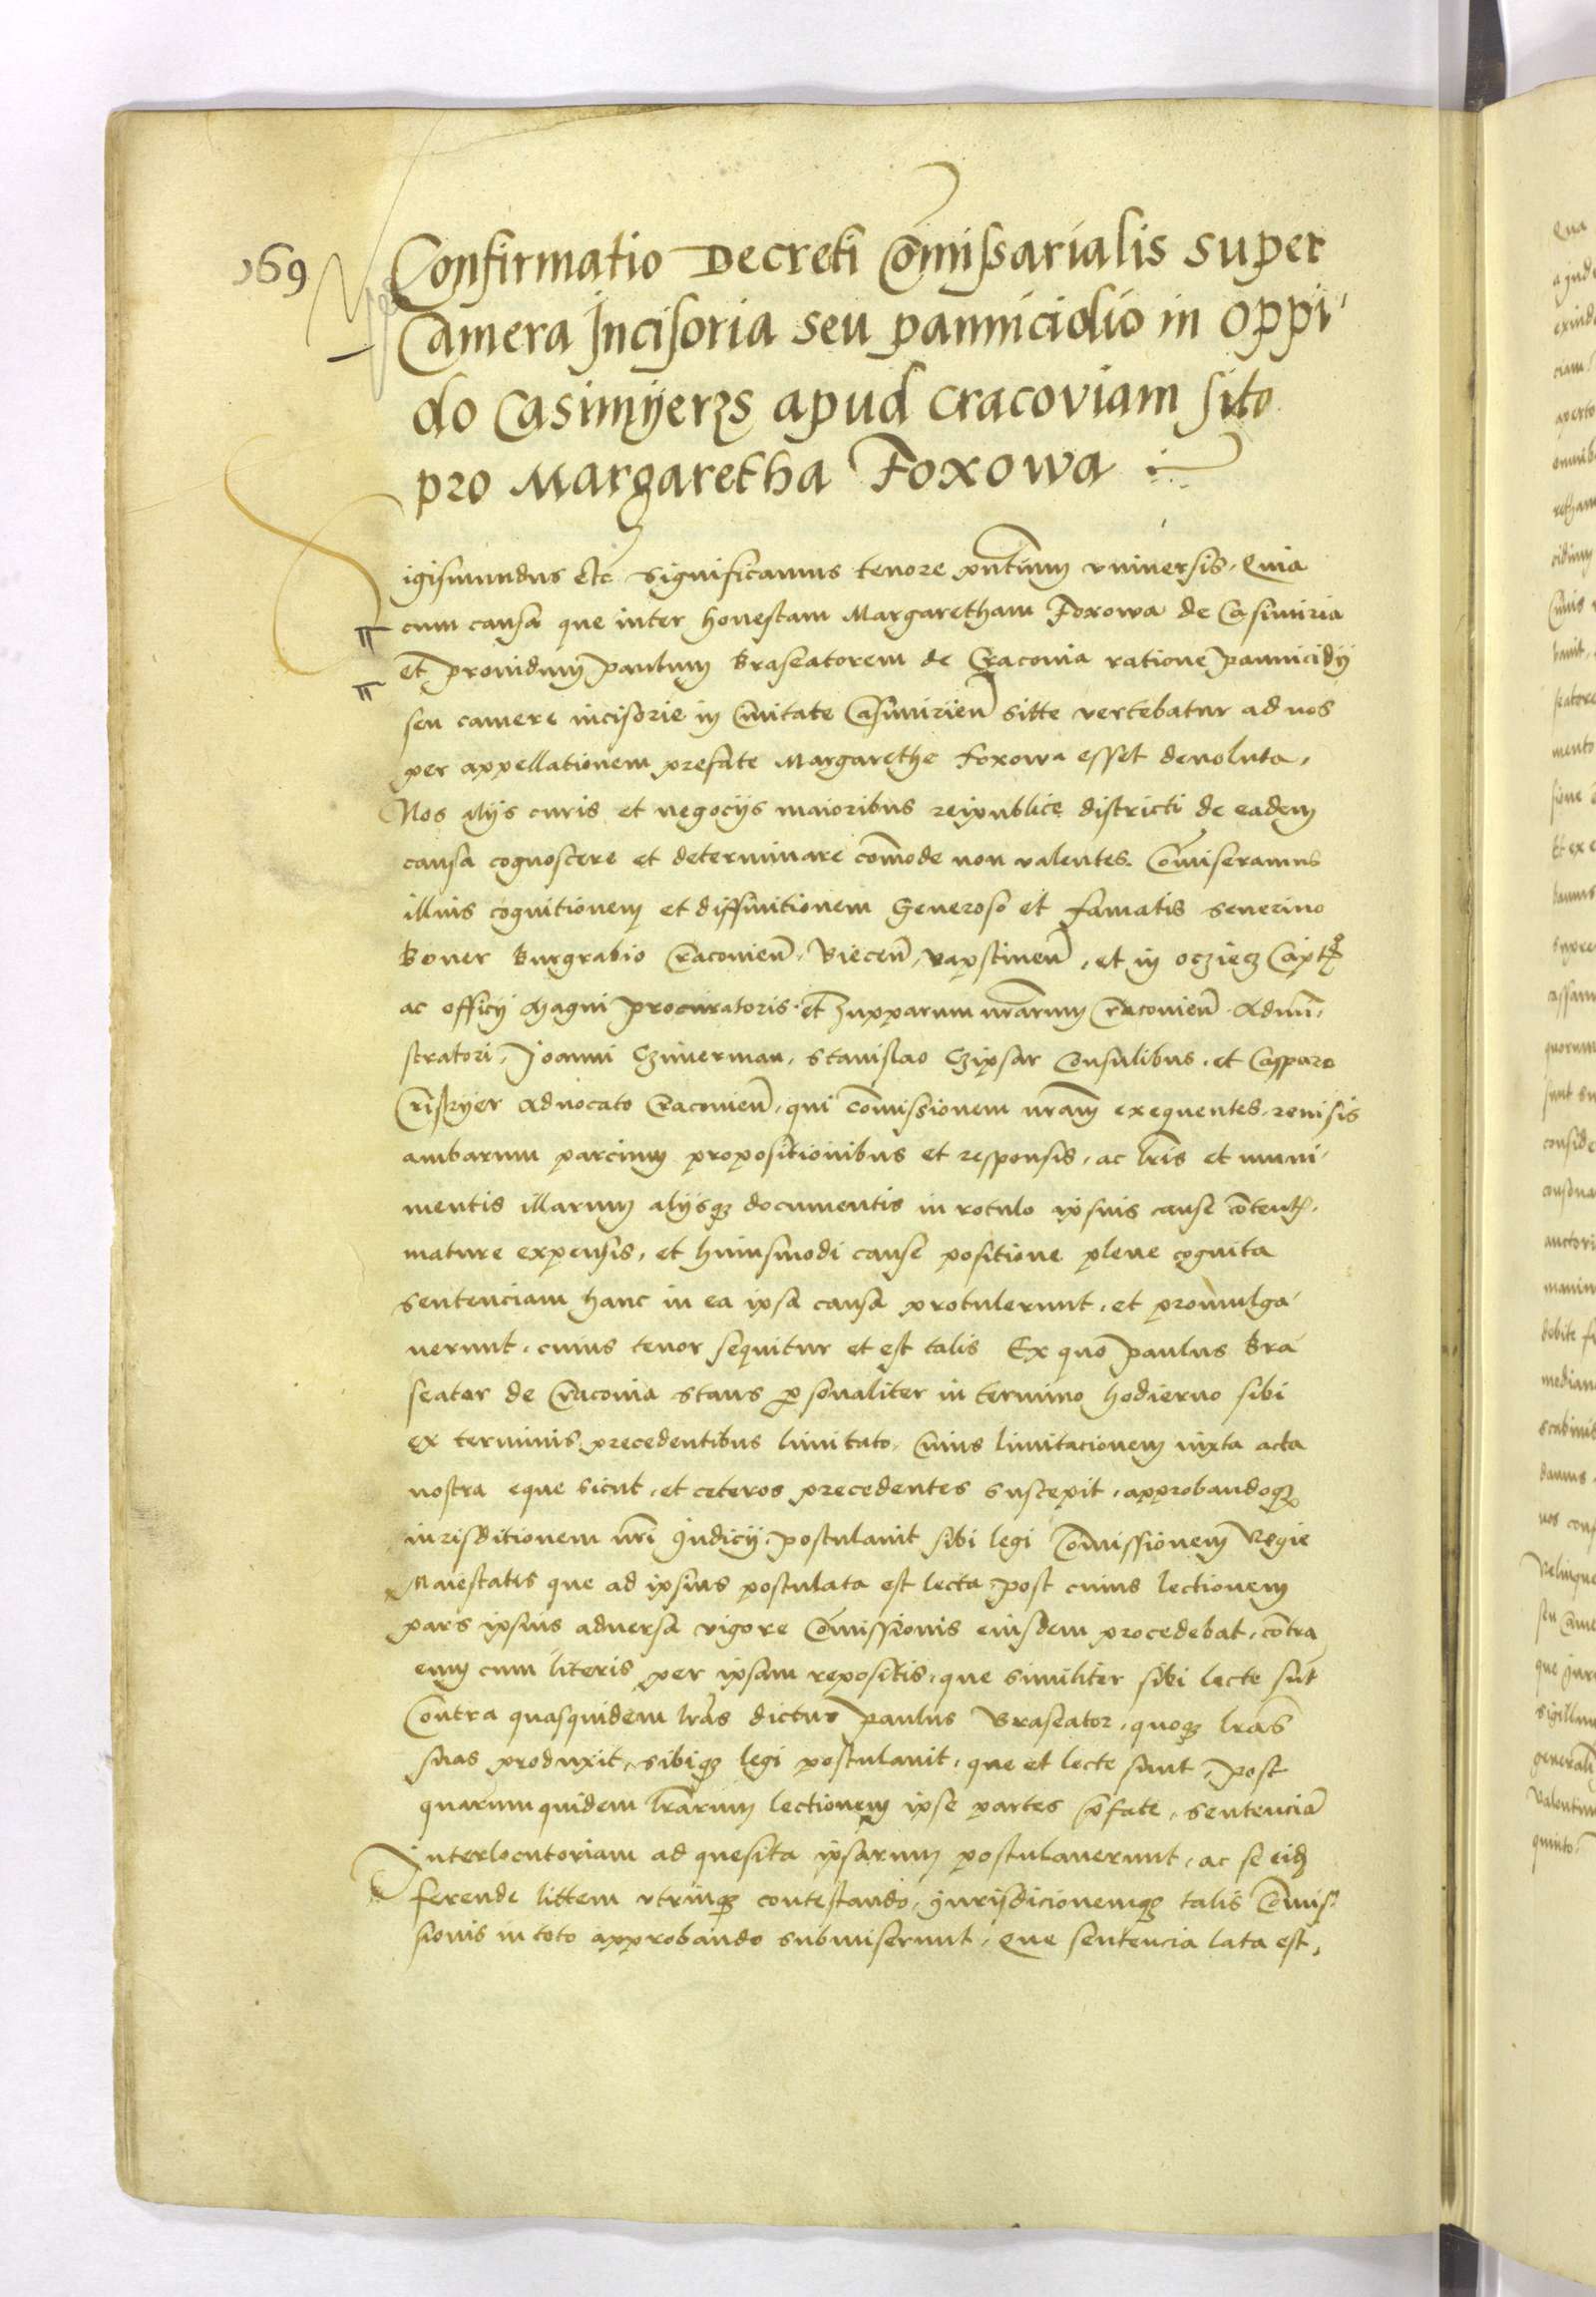 169
Confirmatio Decreti Com̄issarialis super
Camera Incisoria seu pannicidio in oppi
do Casimyerzs apud Cracoviam sito
pro Margaretha Foxowa
Sigismundus etc significamus tenore pn̄tium vniversis. Quia
cum causa que inter honestam Margaretham Foxowa de Casimiria
et prouidum paulum Braseatorem de Cracouia ratione pannicidij
seu camere incisorie in Ciuitate Casimirien̄ sitte vertebatur ad nos
per appellationem prefate Margarethe Foxowa esset deuoluta.
Nos alijs curis et negocijs maioribus reipublice districti de eadem
causa cognoscere et determinare com̄ode non valentes. Com̄iseramus
illius cognitionem et diffinitionem Generoso et famatis seuerino
Boner Burgrabio Cracouien̄. Biecen̄, Rapstinen̄, et in ocziecz Capt
ac officij Magni procuratoris et Zupparum nr̄arum Cracouien̄ Admi
stratori, Joanni Czimerman, stanislao Czipsar Consulibus, et Casparo
advocato Cracouien̄, qui com̄issionem nr̄am exequentes, reuisis
ambarum parcium propositionibus et responsis, ac lr̄is et muni
mentis illarum alijsq; documentis in rotulo ipsius cause content.
mature expensis, et huiusmodi cause positione plene cognita
sentenciam hanc in ea ipsa causa protulerunt, et promulga
uerunt, cuius tenor sequitur et est talis Ex quo paulus Bra
seator de Cracouia stans personaliter in termino hodierno sibi
ex terminis precedentibus limitato, Cuius limitacionem iuxta acta
nostra eque sicut, et ceteros precedentes suscepit, approbandoq;
iurisditionem nr̄i Judicij, postulauit sibi legi Com̄issionem Regie
Maiestatis que ad ipsius postulata est lecta, post cuius lectionem
pars ipsius aduersa vigore Com̄issionis eiusdem procedebat, con̄tra
eum cum literis per ipsam repositis, que similiter sibi lecte sūt
Contra quasquidem lr̄as dictus paulus Braseator, quoq; lr̄as
suas produxit, sibiq; legi postulauit, que et lecte sunt, post
quarumquidem lr̄arum lectionem ipse partes p̄fate, sentenciā
Interlocutoriam ad quesita ipsarum postulauerunt, ac se eid
ferende littem vtrinq; contestando, Jurisdicionemq; talis Com̄is
sionis in toto approbando submiserunt, Que sentencia lata est,